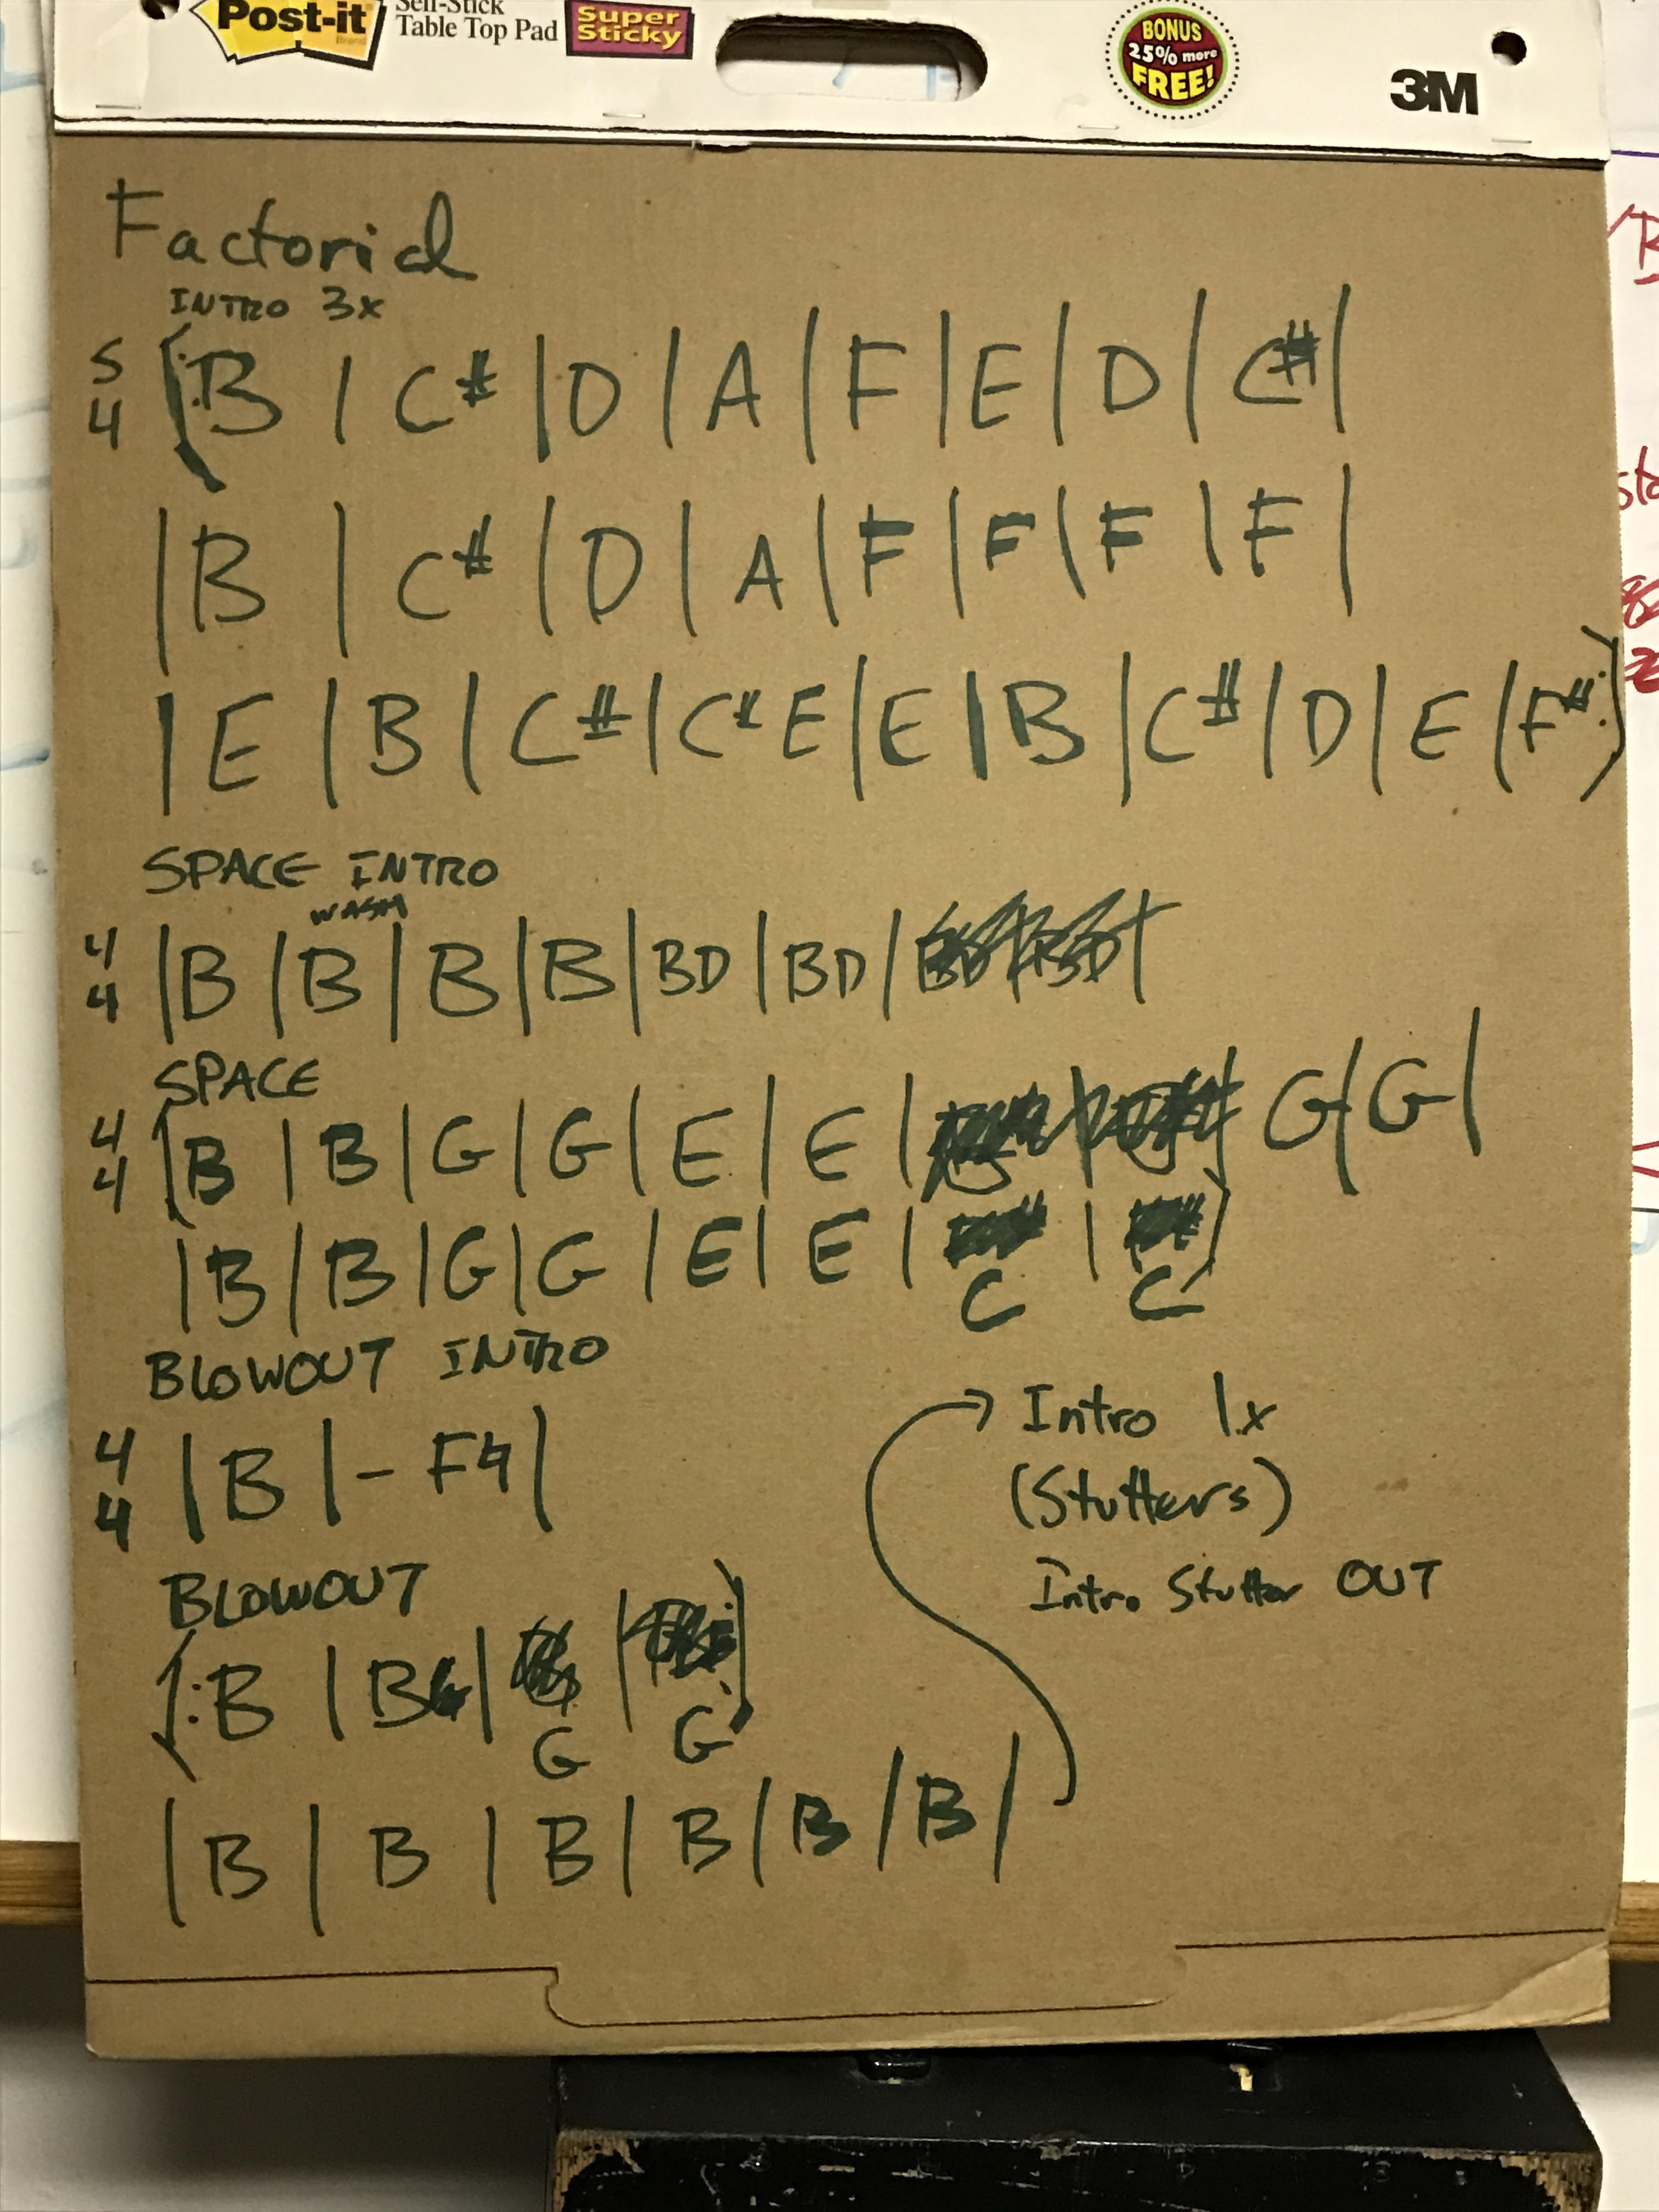 Post-it
Brand
Self-Stick
Table Top Pad
Super
Sticky
BONUS
25% more
FREE!
3M
Factorial
INTRO 3x
5
4
(: B | C# | D | A | F | E | D | C# |
| B | C# | D | A | F | F | F | F |
| E | B | C# | C# E | E | B | C# | D | E | F# :)
SPACE INTRO
WASH
4
4
| B | B | B | B | BD | BD |
SPACE
4
4
( B | B | G | G | E | E | G | G |
| B | B | G | G | E | E | C | C )
BLOWOUT INTRO
4
4
| B | – F4 |
BLOWOUT
(: B | BG | G | G :)
| B | B | B | B | B | B |
→ Intro 1x
(Stutters)
Intro Stutter OUT